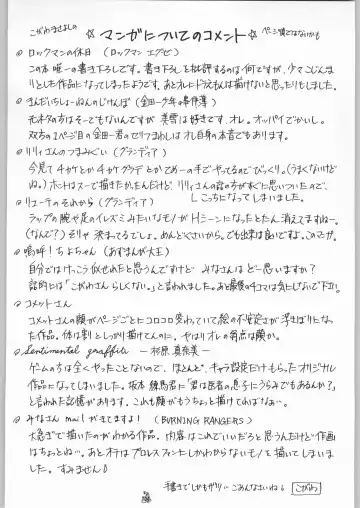 こがわまさよしの
☆マンガについてのコメント☆
ページ順ではないかも
◎ロックマンの休日 (ロックマン エグゼ)
この本唯一の書き下ろしです。書き下ろしと
りとした作品になってしまったようです。あとオレにドリムもんは描けないと思ったりもしました。
◎きんだいちしょーねんのじけんぼ (金田一少年の事件簿)
元ネタの方はそーでもないんですが 美雪は好きです、オレ。オッパイでかいし。
双方の1ページ目の金田一君のセリフまわしは オレ自身の本音でもあります。
◎リリィさんのつまみぐい (グランディア)
今見て
ね。) ホントはスーで描きたかったんだけど リリィさんの話の方がすぐに思いついたので、
こっちになってしまいました。
◎リューテのそれから (グランディア)
ラップの腕や足のイレズミみたいなモノが Hシーンになったとたん 消えてますねー。
(なんで?) そりゃ 決まってるでしょ。めんどくさいから。でも出来は良いですよ。このマンガ。
◎嗚呼! ちよちゃん (あずまんが大王)
自分ではけっこう 似せれたと思うんですけど みなさんは どー思いますか?
的には「こがわさんらしくない。」と言われました。あと最後の4コマは気にしないで下さい。
◎コメットさん
コメットさんの顔がページごとにコロコロ変わっていて絵の不安定さが浮きぼりになっ
た作品。体は割としっかり描けてんのに。やはりオレの弱点は顔か。
◎Sentimental graffiti ー 杉原真奈美ー
ゲームの方は全くやったことないので、ほとんど、キャラ設定だけもらったオリジナル
作品になってしまいました。坂本練馬君に「男は医者の息子にうらみでもあるんか?」
と言われた記憶があります。これも顔がもうちょっと描けてればなぁ…。
◎みなさん mailがきてますよ! (BURNING RANGERS)
大急ぎで描いたのがわかる作品。内容はこれでいいだろと思うんだけど作画
はちょっとね…。あとオチはプロレスファンとしかわからないモノを描いてしまいまし
た。すみません♪
手書きでしかもザツい ごめんなさいね♪
こがわ